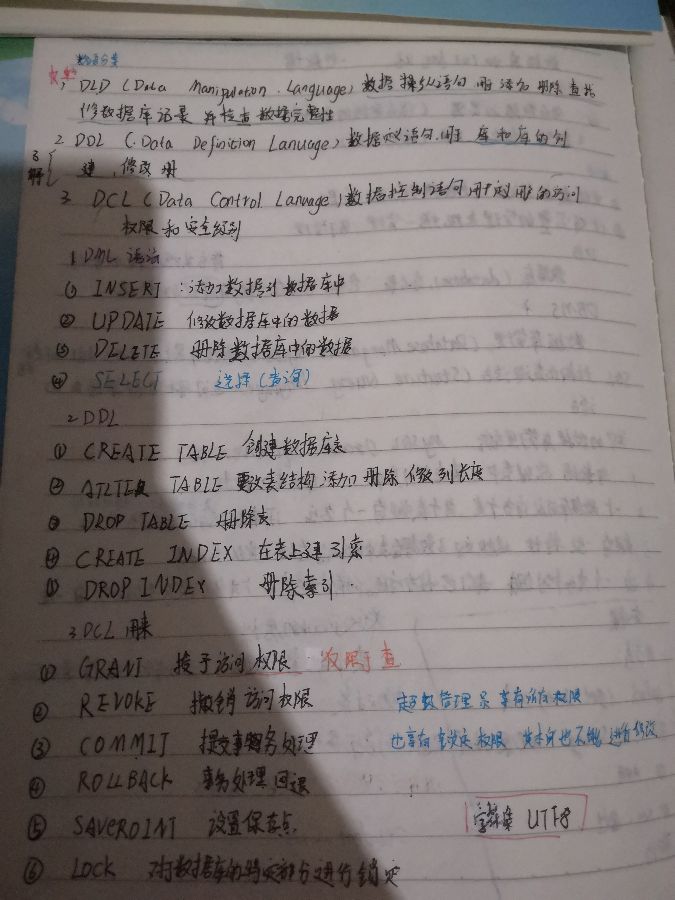 数据分类
1, DLD (Data Manipulation Language) 数据操纵语句 用 添加 删除 查询
修数据库记录 并检查数据完整性
2. DDL (Data Definition Lanuage) 数据定义语句,用于 库和库的创
建, 修改 册
3 DCL (Data Control Lanuage) 数据控制语句 用于定义用户的访问
权限和安全级别
1 DML 语法
① INSERT :添加数据到数据库中
② UPDATE 修改数据库中的数据
③ DELETE 册除数据库中的数据
④ SELECT 选择(查询)
2 DDL
① CREATE TABLE 创建数据库表
② ATLTER TABLE 更改表结构 添加 册除 修改列长度
③ DROP TABLE 册除表
④ CREATE INDEX 在表上建引索
⑤ DROP INDEX 册除索引
3 DCL 用来
① GRANT 授予访问权限 权限于查
② REVOKE 撤销访问权限 超级管理员 享有所有权限
③ COMMIT 提交事务处理 也享有 权限 其本身也不能进行修改
④ ROLLBACK 事务处理回退
⑤ SAVEROINT 设置保存点 字符集 UTF8
⑥ LOCK 对数据库的特定部分进行锁定